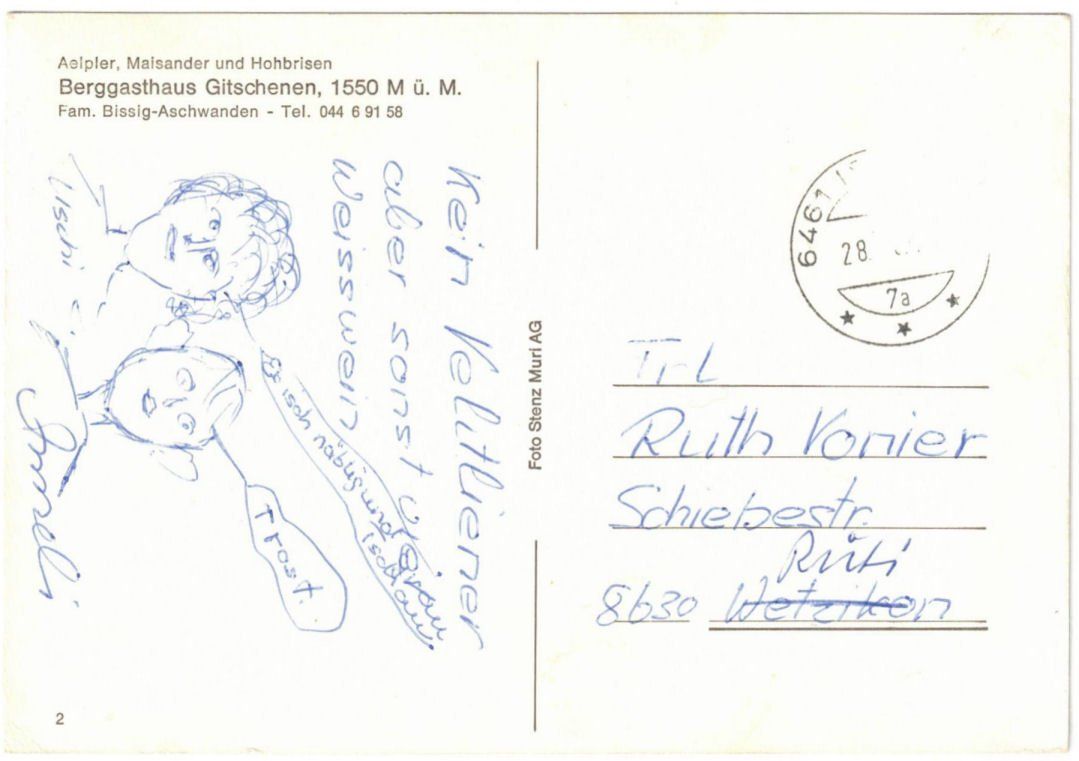 Aelpler, Maisander und Hohbrisen
Berggasthaus Gitschenen, 1550 M ü. M.
Fam. Bissig-Aschwanden - Tel. 044 6 91 58
Kein Veltliener
aber sonst
Weisswein
isch näblig und
Trost.
Uschi
Foto Stenz Muri AG
6461
28.
7a
Frl
Ruth Vonier
Schiebestr.
Rüti
8630 Wetzikon
2